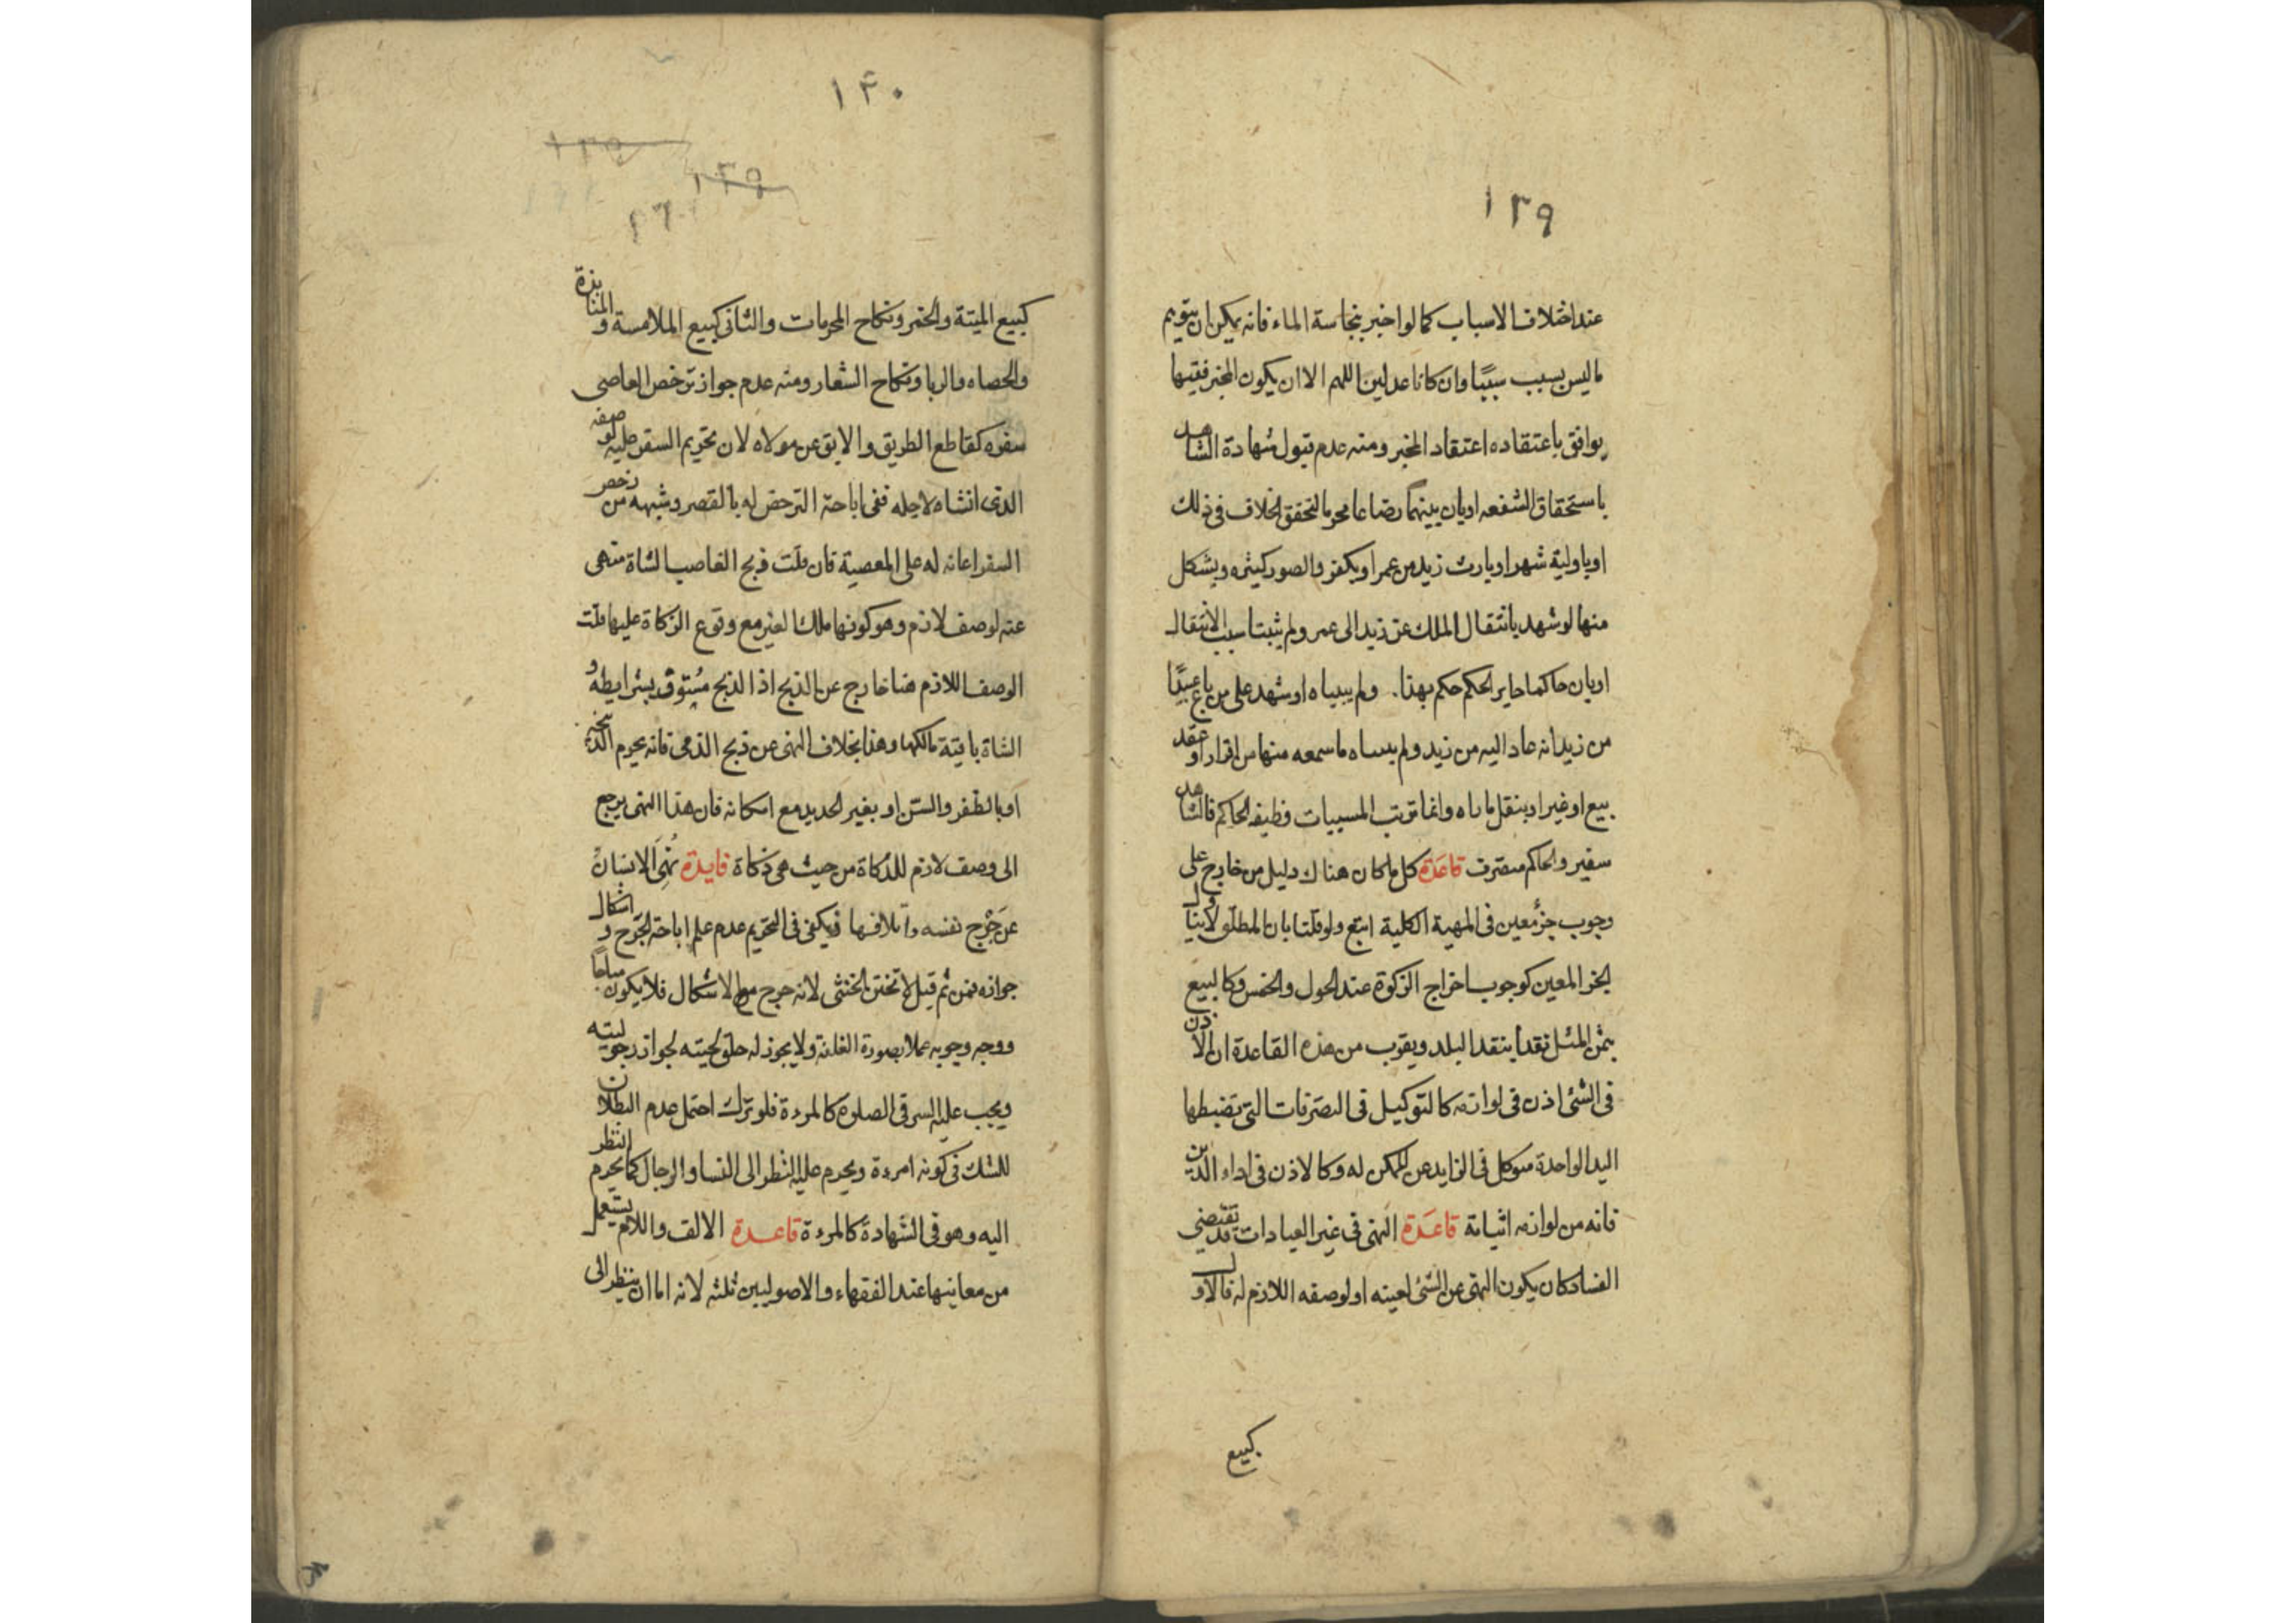 ١٣٩
عند اختلاف الاسباب كما لو اخبر بنجاسة الماء فانه يمكن ان يتوهم
ما ليس بسبب سببًا وان كانا عدلين اللهم الا ان يكون المخبر فقيها
يوافق باعتقاده اعتقاد المخبر ومنه عدم قبول شهادة الشاهد
باستحقاق الشفعه او بان بينهما رضاعا محرما لتحقق الخلاف في ذلك
او باولية شهر او بارث زيد من عمر او بكفر والصور كثيره ويشكل
منها لو شهد بانتقال الملك عن زيد الى عمر ولم يثبتا سبب الانتقال
او بان حاكما جاير الحكم حكم بهذا ولم يبيناه او شهد على من باع عبيدًا
من زيد انه عاد اليه من زيد ولم يبيناه ما سمعه منهما من اقرار او عقد
بيع او غير او بنقل ما راه وانما ترتب المسببات وظيفه الحاكم فالشاهد
سفير والحاكم متصرف قاعدة كل ما كان هناك دليل من خارج على
وجوب جزء معين في المهية الكلية اتبع ولو قلنا بان المطلق لا يتناول
الجز المعين كوجوب اخراج الزكوة عند الحول والخمس وكالبيع
بثمن المثل نقدا بنقد البلد ويقرب من هذه القاعدة ان الاذن
في الشئ اذن في لوازمه كالتوكيل في التصرفات التي تضبطها
اليد الواحدة فيوكل في الزايد عن الممكن له وكالاذن في اداء الدين
فانه من لوازمه اثباته قاعدة النهي في غير العبادات قد يقتضي
الفساد كان يكون النهي عن الشئ لعينه او لوصفه اللازم له فالاول
كبيع
١٣٠
كبيع الميتة والخمر ونكاح المحرمات والثاني كبيع الملامسة والمنابذة
والحصاه والربا ونكاح الشغار ومنه عدم جواز ترخص العاصي
سفره كقاطع الطريق والابق عن مولاه لان تحريم السفر عليه لو صفه
الذي انشاه لاجله ففي اباحة الترخص له بالقصر وشبهه من رخص
السفر اعانه له على المعصية فان قلت ذبح الغاصب الشاة منهى
عنه لوصف لازم وهو كونها ملك الغير مع وقوع الزكاة عليها قلت
الوصف اللازم هنا خارج عن الذبح اذ الذبح مستوفى بشرايطه و
الشاة باقية مالكها وهذا بخلاف النهى عن ذبح الذمى فانه يحرم الذبح
او بالظفر والسن او بغير الحديد مع امكانه فان هذا النهى يرجع
الى وصف لازم للذكاة من حيث هى ذكاة فايدة نُهِيَ الانسان
عن جَرْح نفسه واتلافها فيكفى في التحريم عدم علم اباحة الجرح و اشكال
جوازه فمن ثم قيل لا تختن الخنثى لانه جرح مع الاشكال فلا يكون مباحًا
ووجه وجوبه عملا بصورة الغلفة ولا يجوز له حلق لحيته لجواز رجوليته
ويجب عليه الستر في الصلوة كالمرءة فلو ترك احتمل عدم البطلان
للشك في كونه امرءة ويحرم عليه النظر الى النسا والرجال كما يحرم النظر
اليه وهو في الشهادة كالمرءة قاعدة الالف واللام يستعمل
من معانيها عند الفقهاء والاصوليين ثلثه لانه اما ان ينظر الى